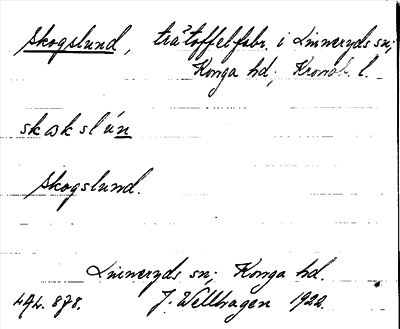 Skogslund, trätoffelfabr. i Linneryds sn;
Konga hd; Kronob. l.
skɷksl'ún
Skogslund.
Linneryds sn; Konga hd.
J. Wellhagen 1922.